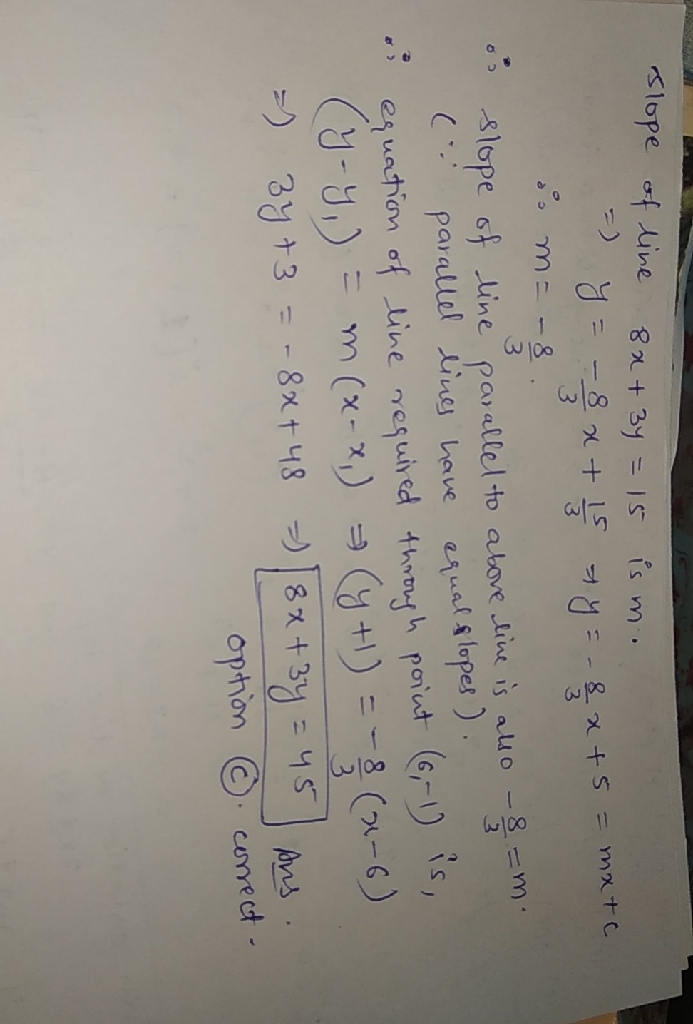 slope of line 8x + 3y = 15 is m.
⇒ y = -8/3 x + 15/3 ⇒ y = -8/3 x + 5 = mx + c
∴ m = -8/3.
∴ slope of line parallel to above line is also -8/3 = m.
(∵ parallel lines have equal slopes).
∴ equation of line required through point (6,-1) is,
(y - y₁) = m(x - x₁) ⇒ (y + 1) = -8/3 (x - 6)
⇒ 3y + 3 = -8x + 48 ⇒ 8x + 3y = 45 Ans.
option Ⓒ. correct.